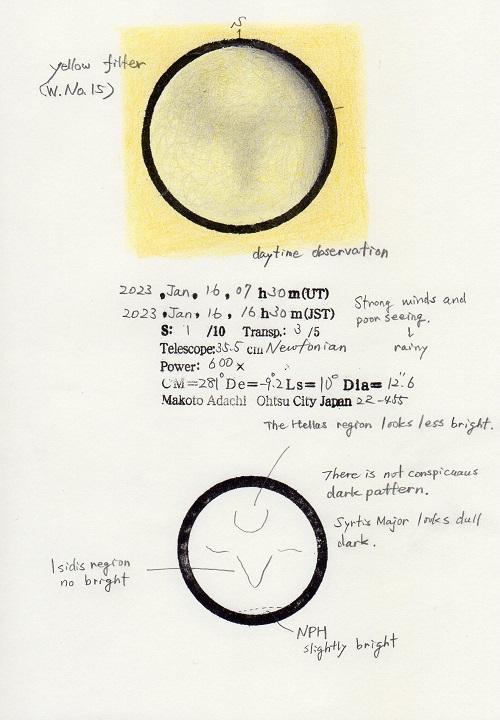 S
yellow filter
(W.No.15)
daytime observation
2023, Jan, 16, 07 h 30 m (UT)
2023, Jan, 16, 16 h 30 m (JST)
S: 1 /10 Transp.: 3 /5
Telescope: 35.5 cm Newtonian
Power: 600 ×
CM=281° De=-9.2 Ls=10° Dia=12".6
Makoto Adachi Ohtsu City Japan 22-455
Strong minds and
poor seeing.
↓
rainy
The Hellas region looks less bright.
There is not conspicuaus
dark pattern.
Syrtis Major looks dull
dark.
Isidis region
no bright
NPH
slightly bright